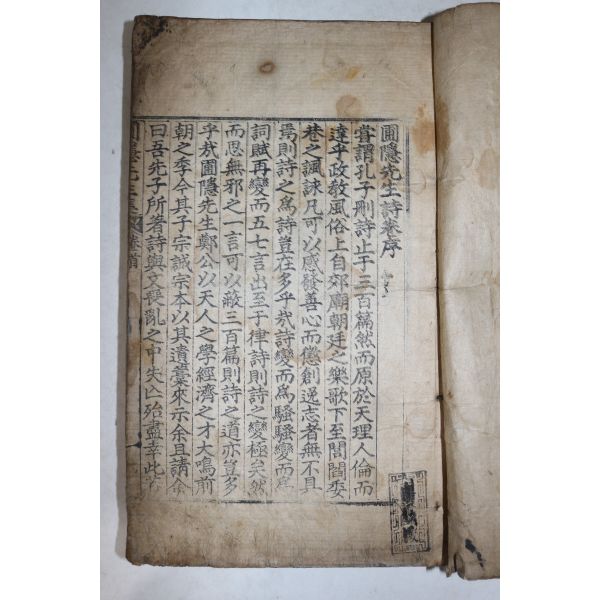 圃隱先生詩卷序
嘗謂孔子刪詩止于三百篇然而原於天理人倫而
達乎政教風俗上自郊廟朝廷之樂歌下至閭閻委
巷之諷誦凡可以感發善心而懲創逸志者無不具
焉則詩之爲詩豈在多乎㦲詩變而爲騷騷變而爲
詞賦再變而五七言出至于律詩則詩之變極矣然
而思無邪之一言可以蔽三百篇則詩之道亦豈多
乎㦲圃隱先生鄭公以天人之學經濟之才大鳴前
朝之季今其子宗誠宗本以其遺藁來示余且請余
曰吾先子所著詩與文喪亂之中失亾殆盡幸此
圃隱先生集 卷首